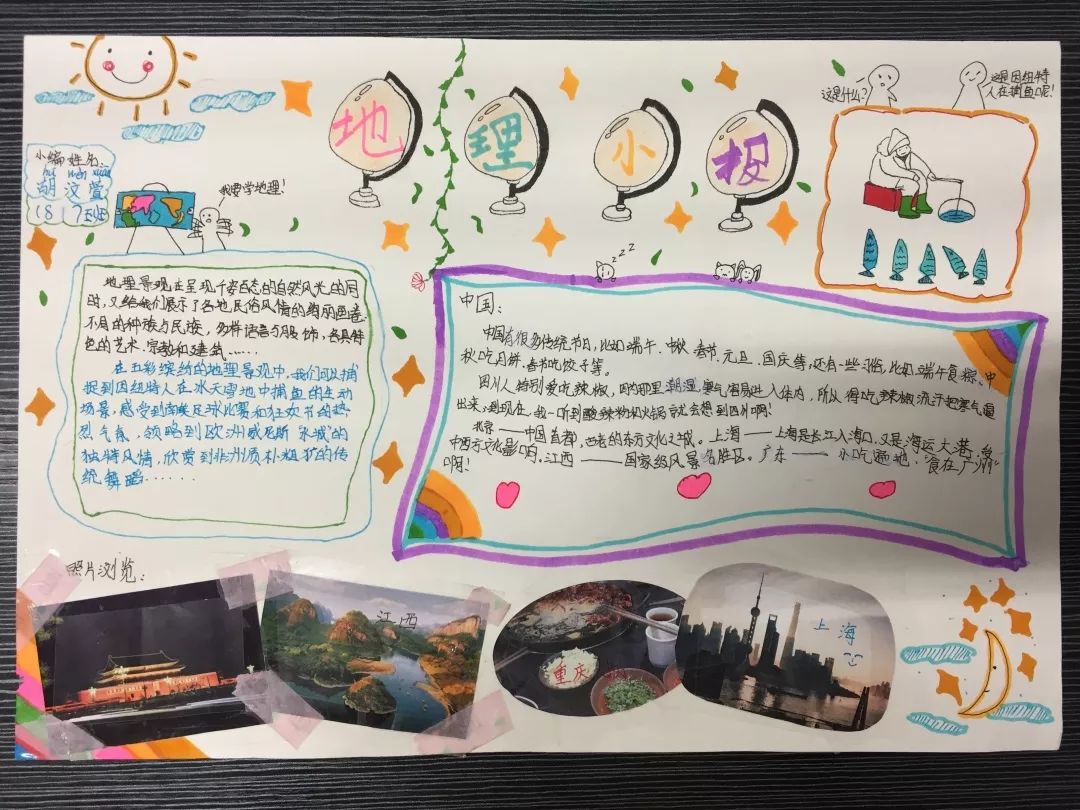 地理小报
这是什么?
这是因纽特
人在捕鱼呢!
小编姓名:
hú wèn xuān
胡汶萱
1817班
我要学地理!
地理导观在呈现千姿百态的自然风光的同
时,又给我们展示了各地民俗风情的绚丽画卷:
不同的种族与民族,多样语言与服饰,各具特
色的艺术、宗教和建筑……
在五彩缤纷的地理导观中,我们可以捕
捉到因纽特人在冰天雪地中捕鱼的生动
场景,感受到南美足球比赛和狂欢节的热
烈气氛,领略到欧洲威尼斯“水城”的
独特风情,欣赏到非洲质朴粗犷的传
统舞蹈……
zzz
中国:
中国有很多传统节日,比如端午、中秋、春节、元旦、国庆等,还有一些习俗,比如端午食粽、中
秋吃月饼、春节吃饺子等。
四川人特别爱吃辣椒,因为那里潮湿,寒气容易进入体内,所以得吃辣椒流汗把寒气逼
出来,到现在,我一听到酸辣粉和火锅就会想到四川啊!
北京——中国首都,也者的东方文化之城。上海——上海是长江入海口,又是海运大港,受
中西方文化影响。江西——国家级风景名胜区。广东——小吃遍地,“食在广州”
啊!
照片浏览:
江西
重庆
上海